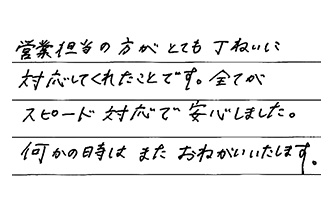 営業担当の方がとても丁ねいに
対応してくれたことです。全てが
スピード対応で安心しました。
何かの時は また おねがいいたします。